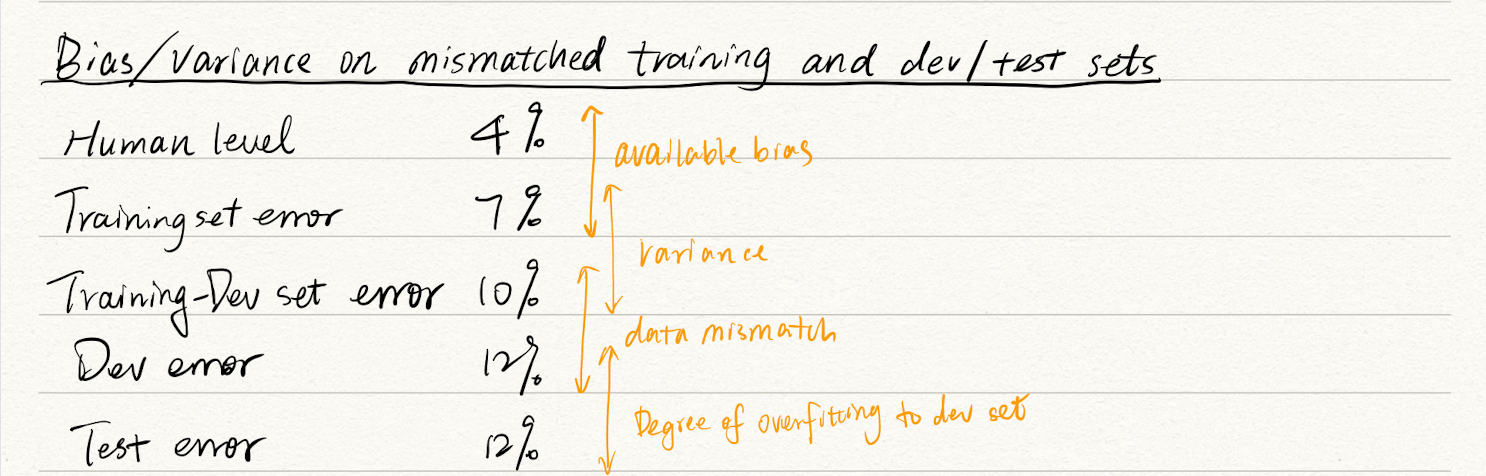 Bias/Variance on mismatched training and dev/test sets
Human level 4%
available bias
Training set error 7%
variance
Training-Dev set error 10%
data mismatch
Dev error 12%
Degree of overfitting to dev set
Test error 12%